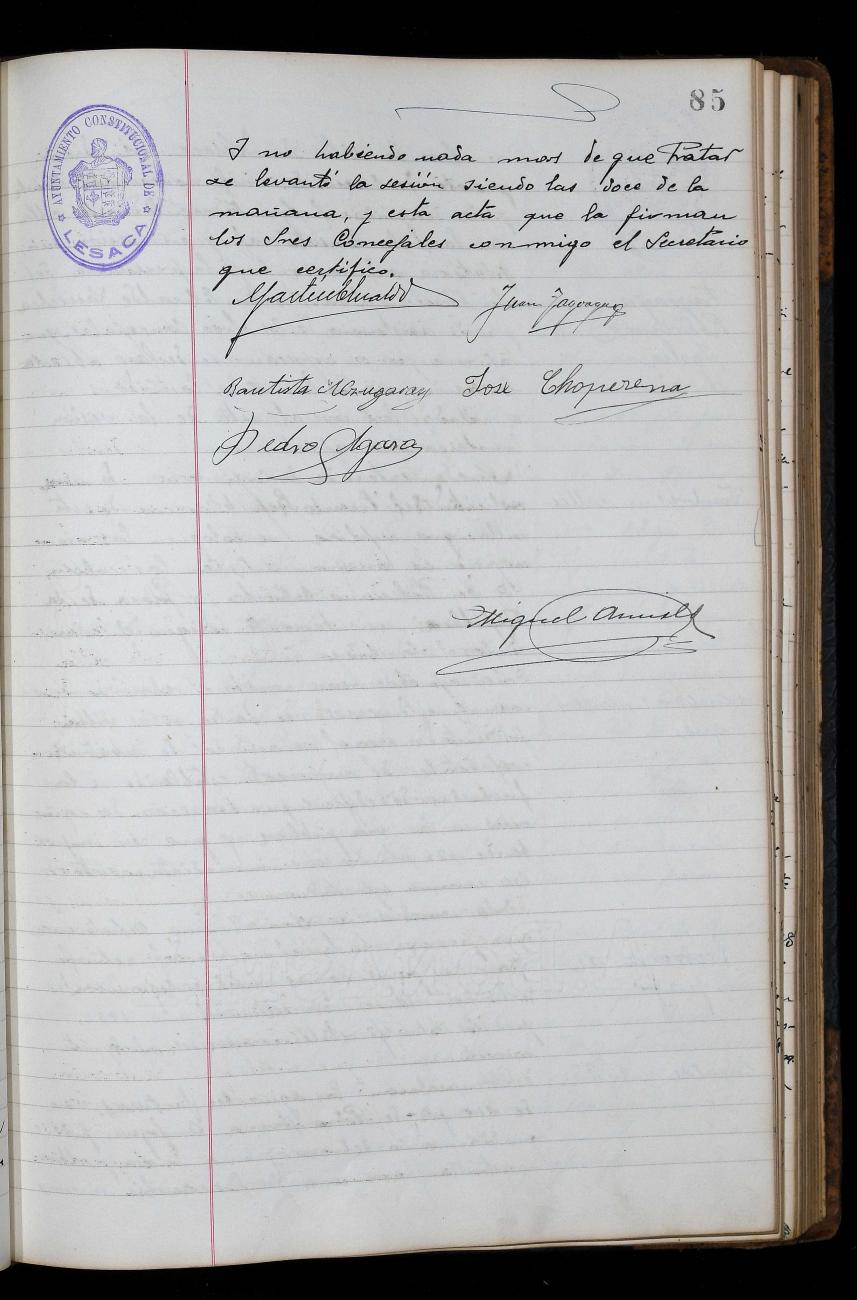 85
AYUNTAMIENTO CONSTITUCIONAL DE
LESACA
Y no habiendo nada mas de que tratar
se levantó la sesión siendo las doce de la
mañana, y esta acta que la firman
los Sres Concejales conmigo el Secretario
que certifico.
Juan
Bautista José Choperena
Pedro
Miguel